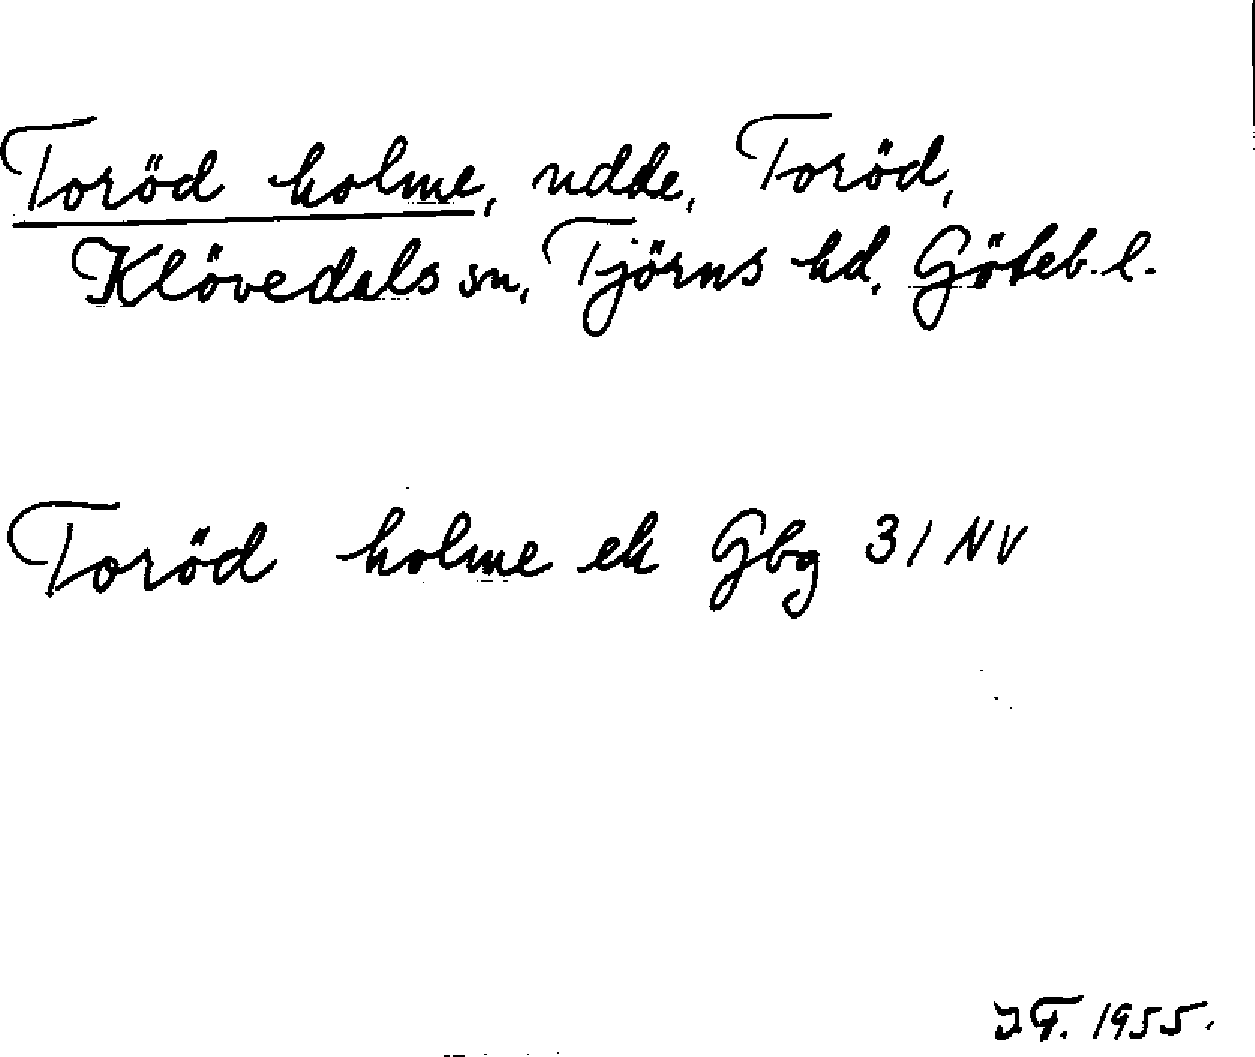 Toröd holme, udde, Toröd,
Klövedals sn, Tjörns hd, Göteb. l.
Toröd holme ek Gbg 31 NV
1955.